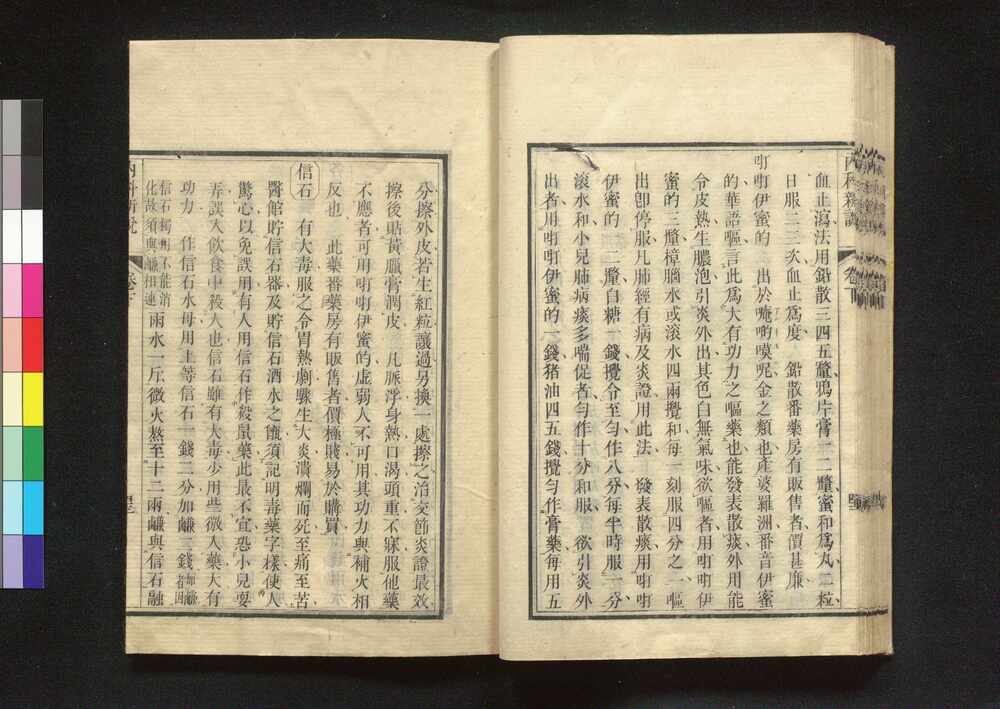 內科新說
卷下
血止瀉法用鉛散三四五釐鴉片膏一二釐蜜和爲丸二粒
日服二三次血止爲度 鉛散番藥房有販售者價甚廉
吖吖伊蜜的 出於唵啲嗼呢金之類也產婆羅洲番音伊蜜
的華語嘔言此爲大有功力之嘔藥也能發表散痰外用能
令皮熱生膿泡引炎外出其色白無氣味欲嘔者用吖吖伊
蜜的三釐樟腦水或滾水四兩攪和每一刻服四分之一嘔
出卽停服凡肺經有病及炎證用此法 發表散痰用吖吖
伊蜜的一二釐白糖一錢攪令至勻作八分每半時服一分
滾水和小兒肺病痰多喘促者勻作十分和服 欲引炎外
出者用吖吖伊蜜的一錢猪油四五錢攪勻作膏藥每用五
分擦外皮若生紅粒讓過另換一處擦之治交節炎證最效
擦後貼黃臘膏潤皮 凡脈浮身熱口渴頭重不寐服他藥
不應者可用吖吖伊蜜的虛弱人不可用其功力與補火相
反也 此藥番藥房有販售者價極賤易於購買
信石 有大毒服之令胃熱劇驟生大炎潰爛而死至痛至苦
醫館貯信石器及貯信石酒水之甑須記明毒藥字樣使人
驚心以免誤用有人用信石作殺鼠藥此最不宜恐小兒耍
弄誤入飲食中殺人也信石雖有大毒少用些微入藥大有
功力 作信石水毋用上等信石一錢二分加鹻三錢加鹻者因
信石獨用不能消化故須與鹻相連雨水一斤微火熬至十二兩鹻與信石融
內科新說
卷下